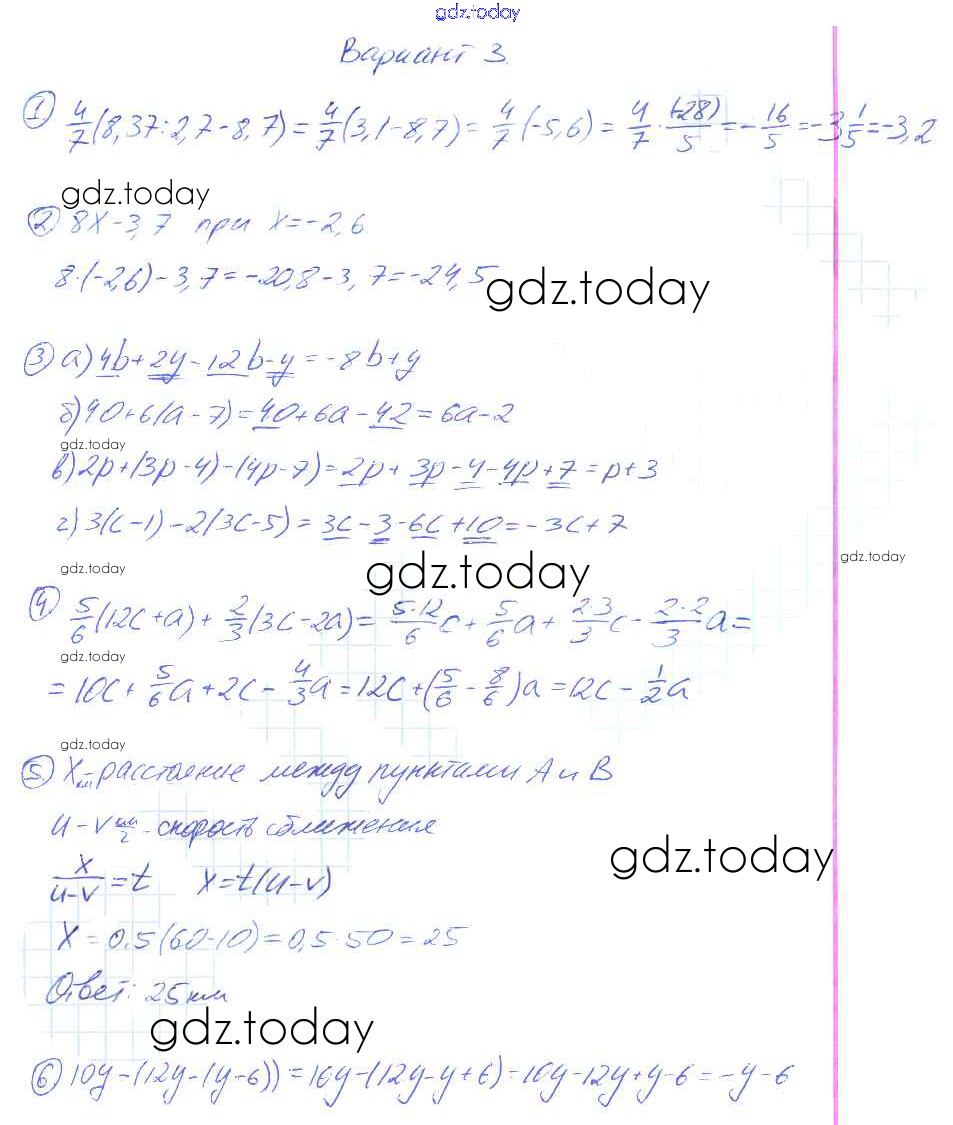 gdz.today
Вариант 3.
1) 4/7(8,37:2,7-8,7)=4/7(3,1-8,7)=4/7(-5,6)=4/7·(-28)/5=-16/5=-3 1/5=-3,2
gdz.today
2) 8x-3,7 при x=-2,6
8·(-2,6)-3,7=-20,8-3,7=-24,5
gdz.today
3) а) 4b+2y-12b-y=-8b+y
б) 40+6(a-7)=40+6a-42=6a-2
gdz.today
в) 2p+(3p-4)-(4p-7)=2p+3p-4-4p+7=p+3
г) 3(c-1)-2(3c-5)=3c-3-6c+10=-3c+7
gdz.today
gdz.today
gdz.today
4) 5/6(12c+a)+2/3(3c-2a)=5·12/6c+5/6a+2·3/3c-2·2/3a=
gdz.today
=10c+5/6a+2c-4/3a=12c+(5/6-8/6)a=12c-1/2a
gdz.today
5) x км-расстояние между пунктами A и B
u-v км/ч-скорость сближения
gdz.today
x/u-v=t x=t(u-v)
x=0.5(60-10)=0,5·50=25
Ответ: 25км
gdz.today
6) 10y-(12y-(y-6))=10y-(12y-y+6)=10y-12y+y-6=-y-6